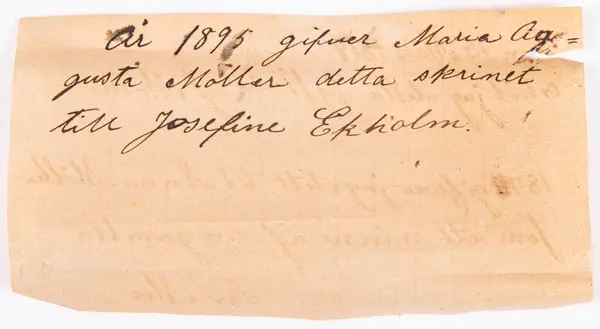 År 1895 gifver Maria Au=
gusta Möller detta skrinet
till Josefine Ekholm.